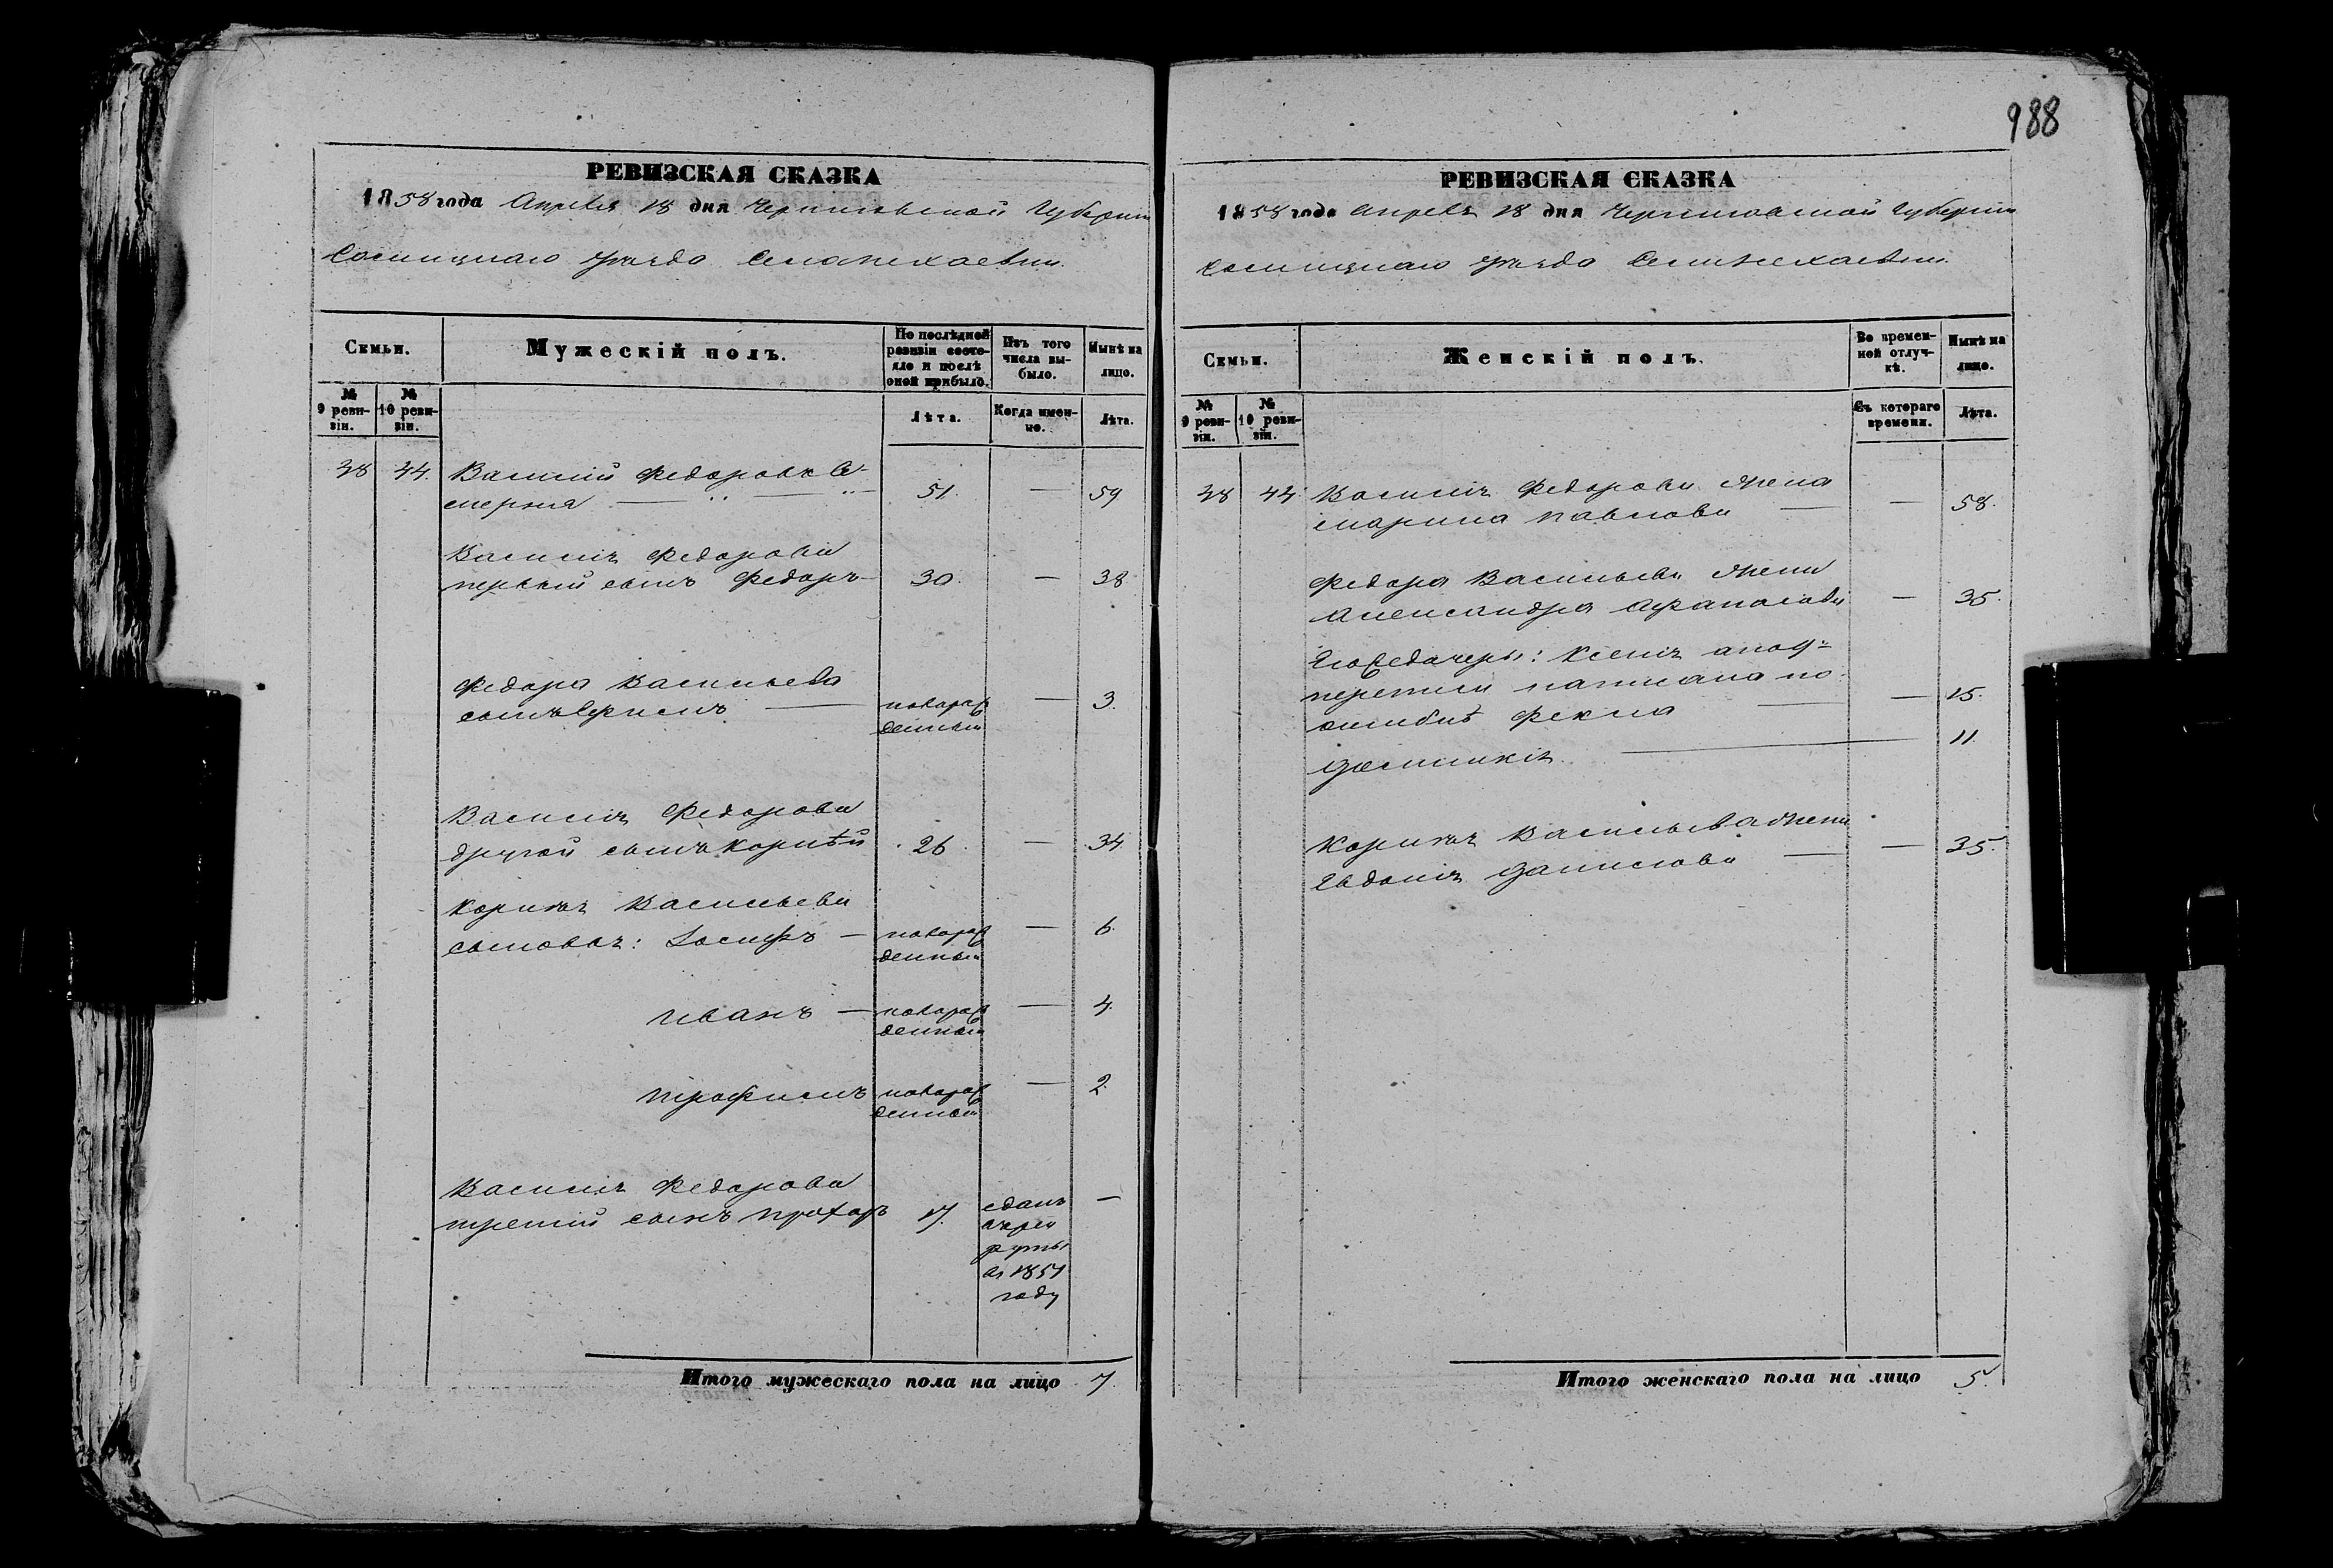 988
РЕВИЗСКАЯ СКАЗКА
1858 года Апреля 18 дня Черниговской Губернии
Сосницкаго уезда
Семьи.
Мужескій полъ.
По послѣдней ревизіи состояло и послѣ оной прибыло.
Изъ того числа выбыло.
Нынѣ на лицо.
№ 9 ревизіи.
№ 10 ревизіи.
Лѣта.
Когда именно.
Лѣта.
38 44. Василий Федоровъ
51. — 59
Василія Федорова
первый сынъ Федоръ 30. — 38
Федора Васильева
сынъ Ефимъ — новорож
денный — 3.
Василія Федорова
другой сынъ Корнѣй 26. — 34.
Корнѣя Васильева
сыновья: Іосифъ — новорож
денный — 6.
Иванъ — новорож
денный — 4.
Трофимъ новорож
денный — 2.
Василія Федорова
третий сынъ Прохоръ 17. сданъ —
в 1851
году
Итого мужескаго пола на лицо 7.
РЕВИЗСКАЯ СКАЗКА
1858 года Апреля 18 дня Черниговской Губернии
Сосницкаго уезда
Семьи.
Женскій полъ.
Во временной отлучкѣ.
Нынѣ на лицо.
№ 9 ревизіи.
№ 10 ревизіи.
Съ котораго времени.
Лѣта.
38 44 Василія Федорова жена
Марина Павлова — — 58.
Федора Васильева жена
Александра Афанасова — 35.
Его Федора дочери: Ксенія а по 9-й
переписи написана по
ошибкѣ Фекла — — 15.
11.
Корнѣя Васильева жена
Евдокія Данилова — — 35.
Итого женскаго пола на лицо 5.